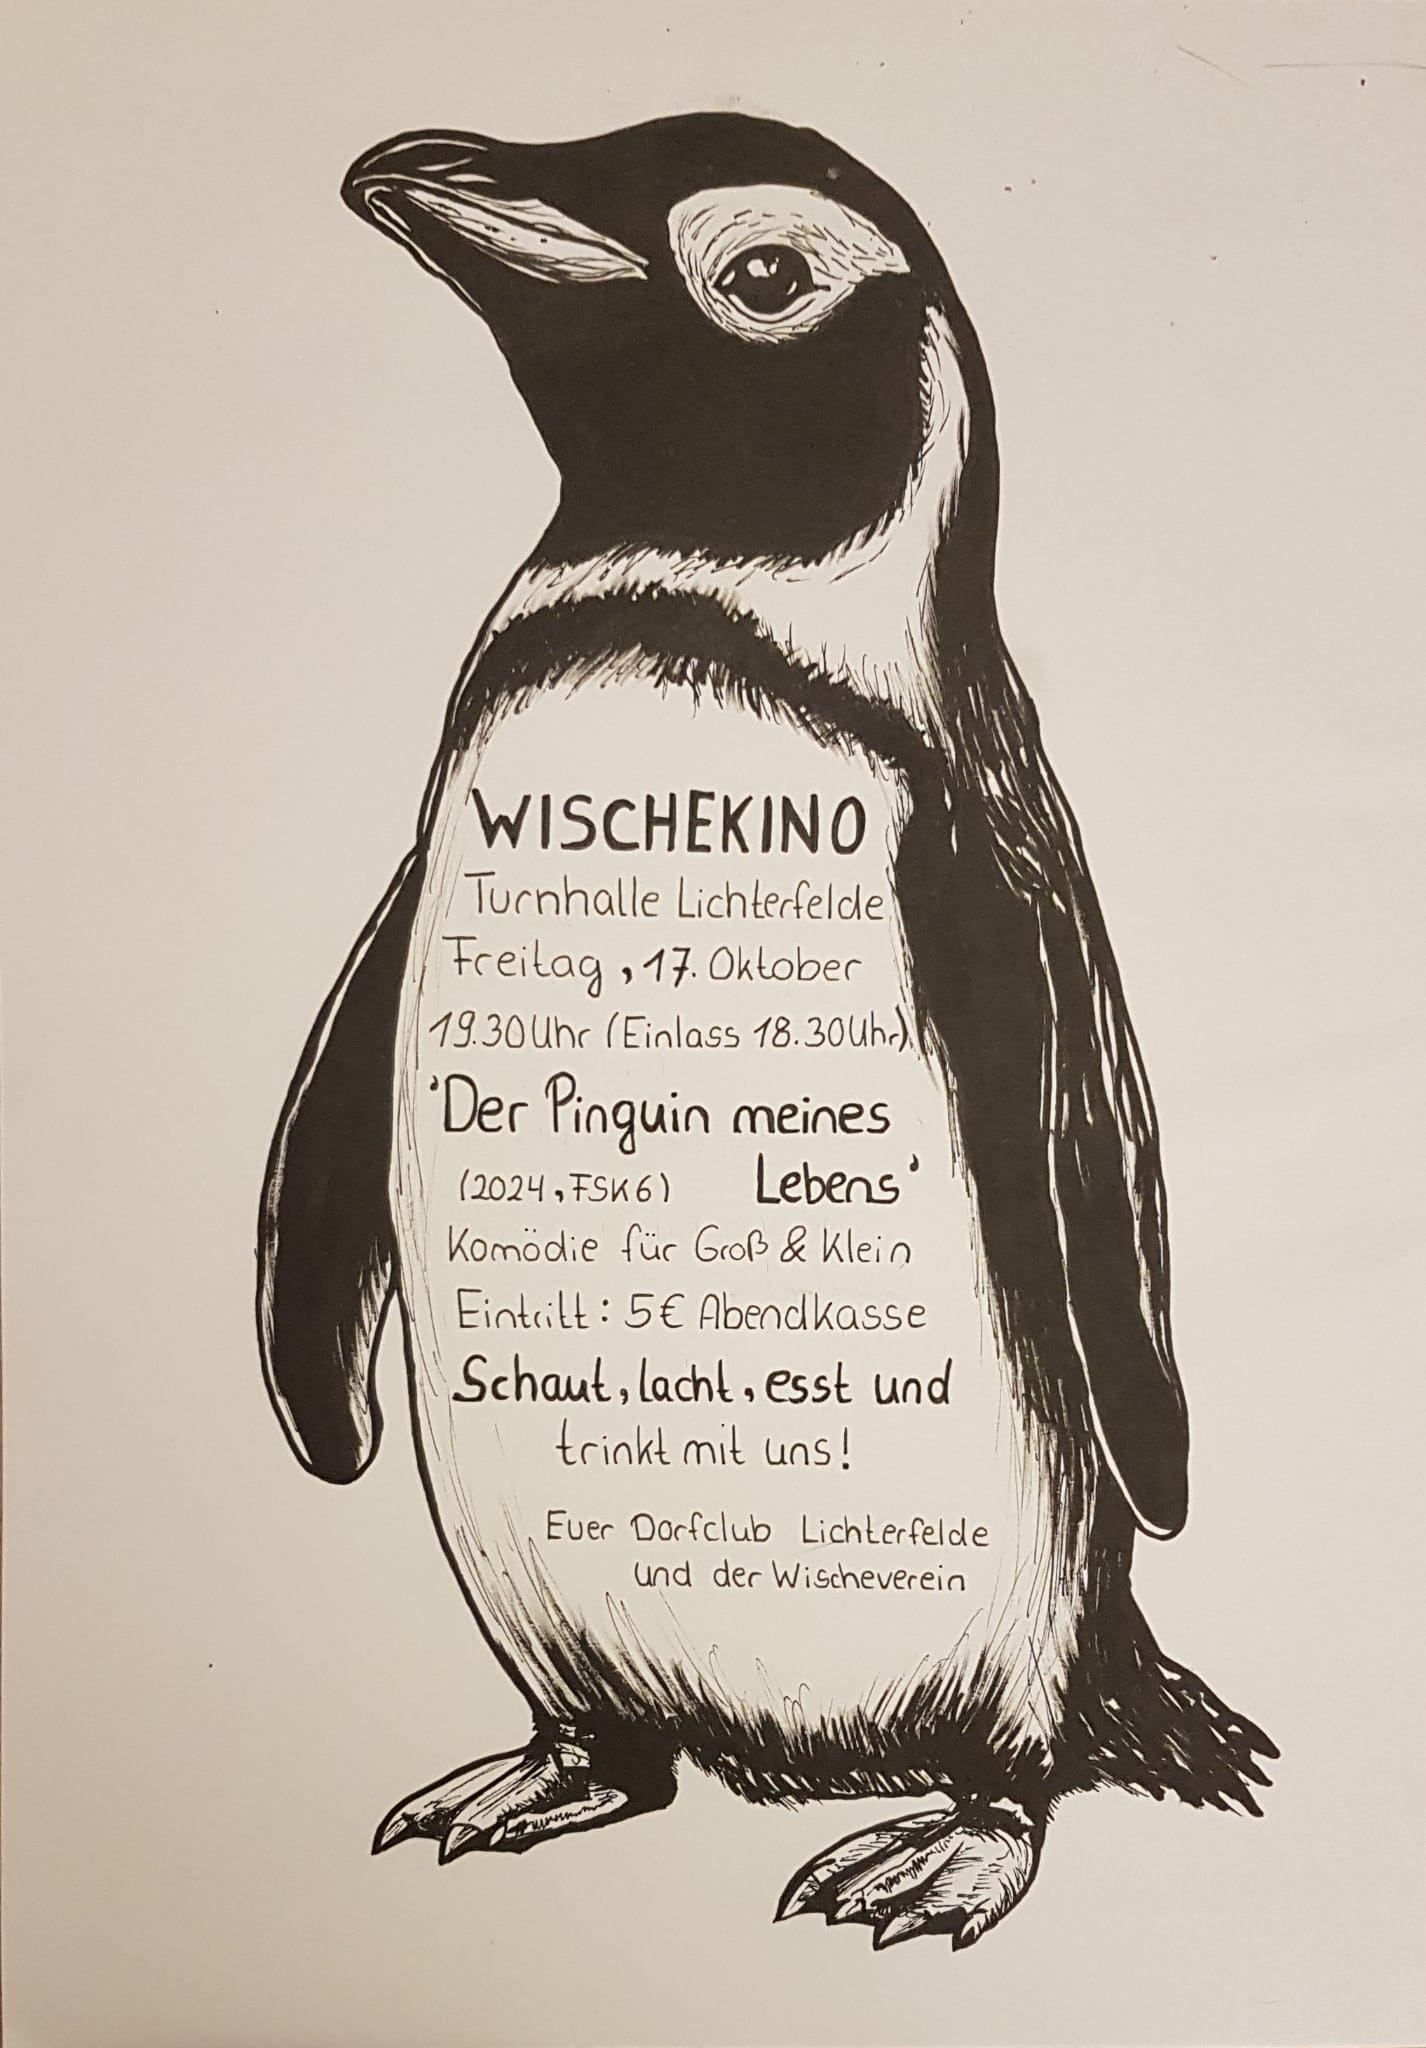 WISCHEKINO
Turnhalle Lichterfelde
Freitag, 17. Oktober
19.30Uhr (Einlass 18.30Uhr)
'Der Pinguin meines
(2024, FSK6) Lebens'
Komödie für Groß & Klein
Eintritt: 5€ Abendkasse
Schaut, lacht, esst und
trinkt mit uns!
Euer Dorfclub Lichterfelde
und der Wischeverein